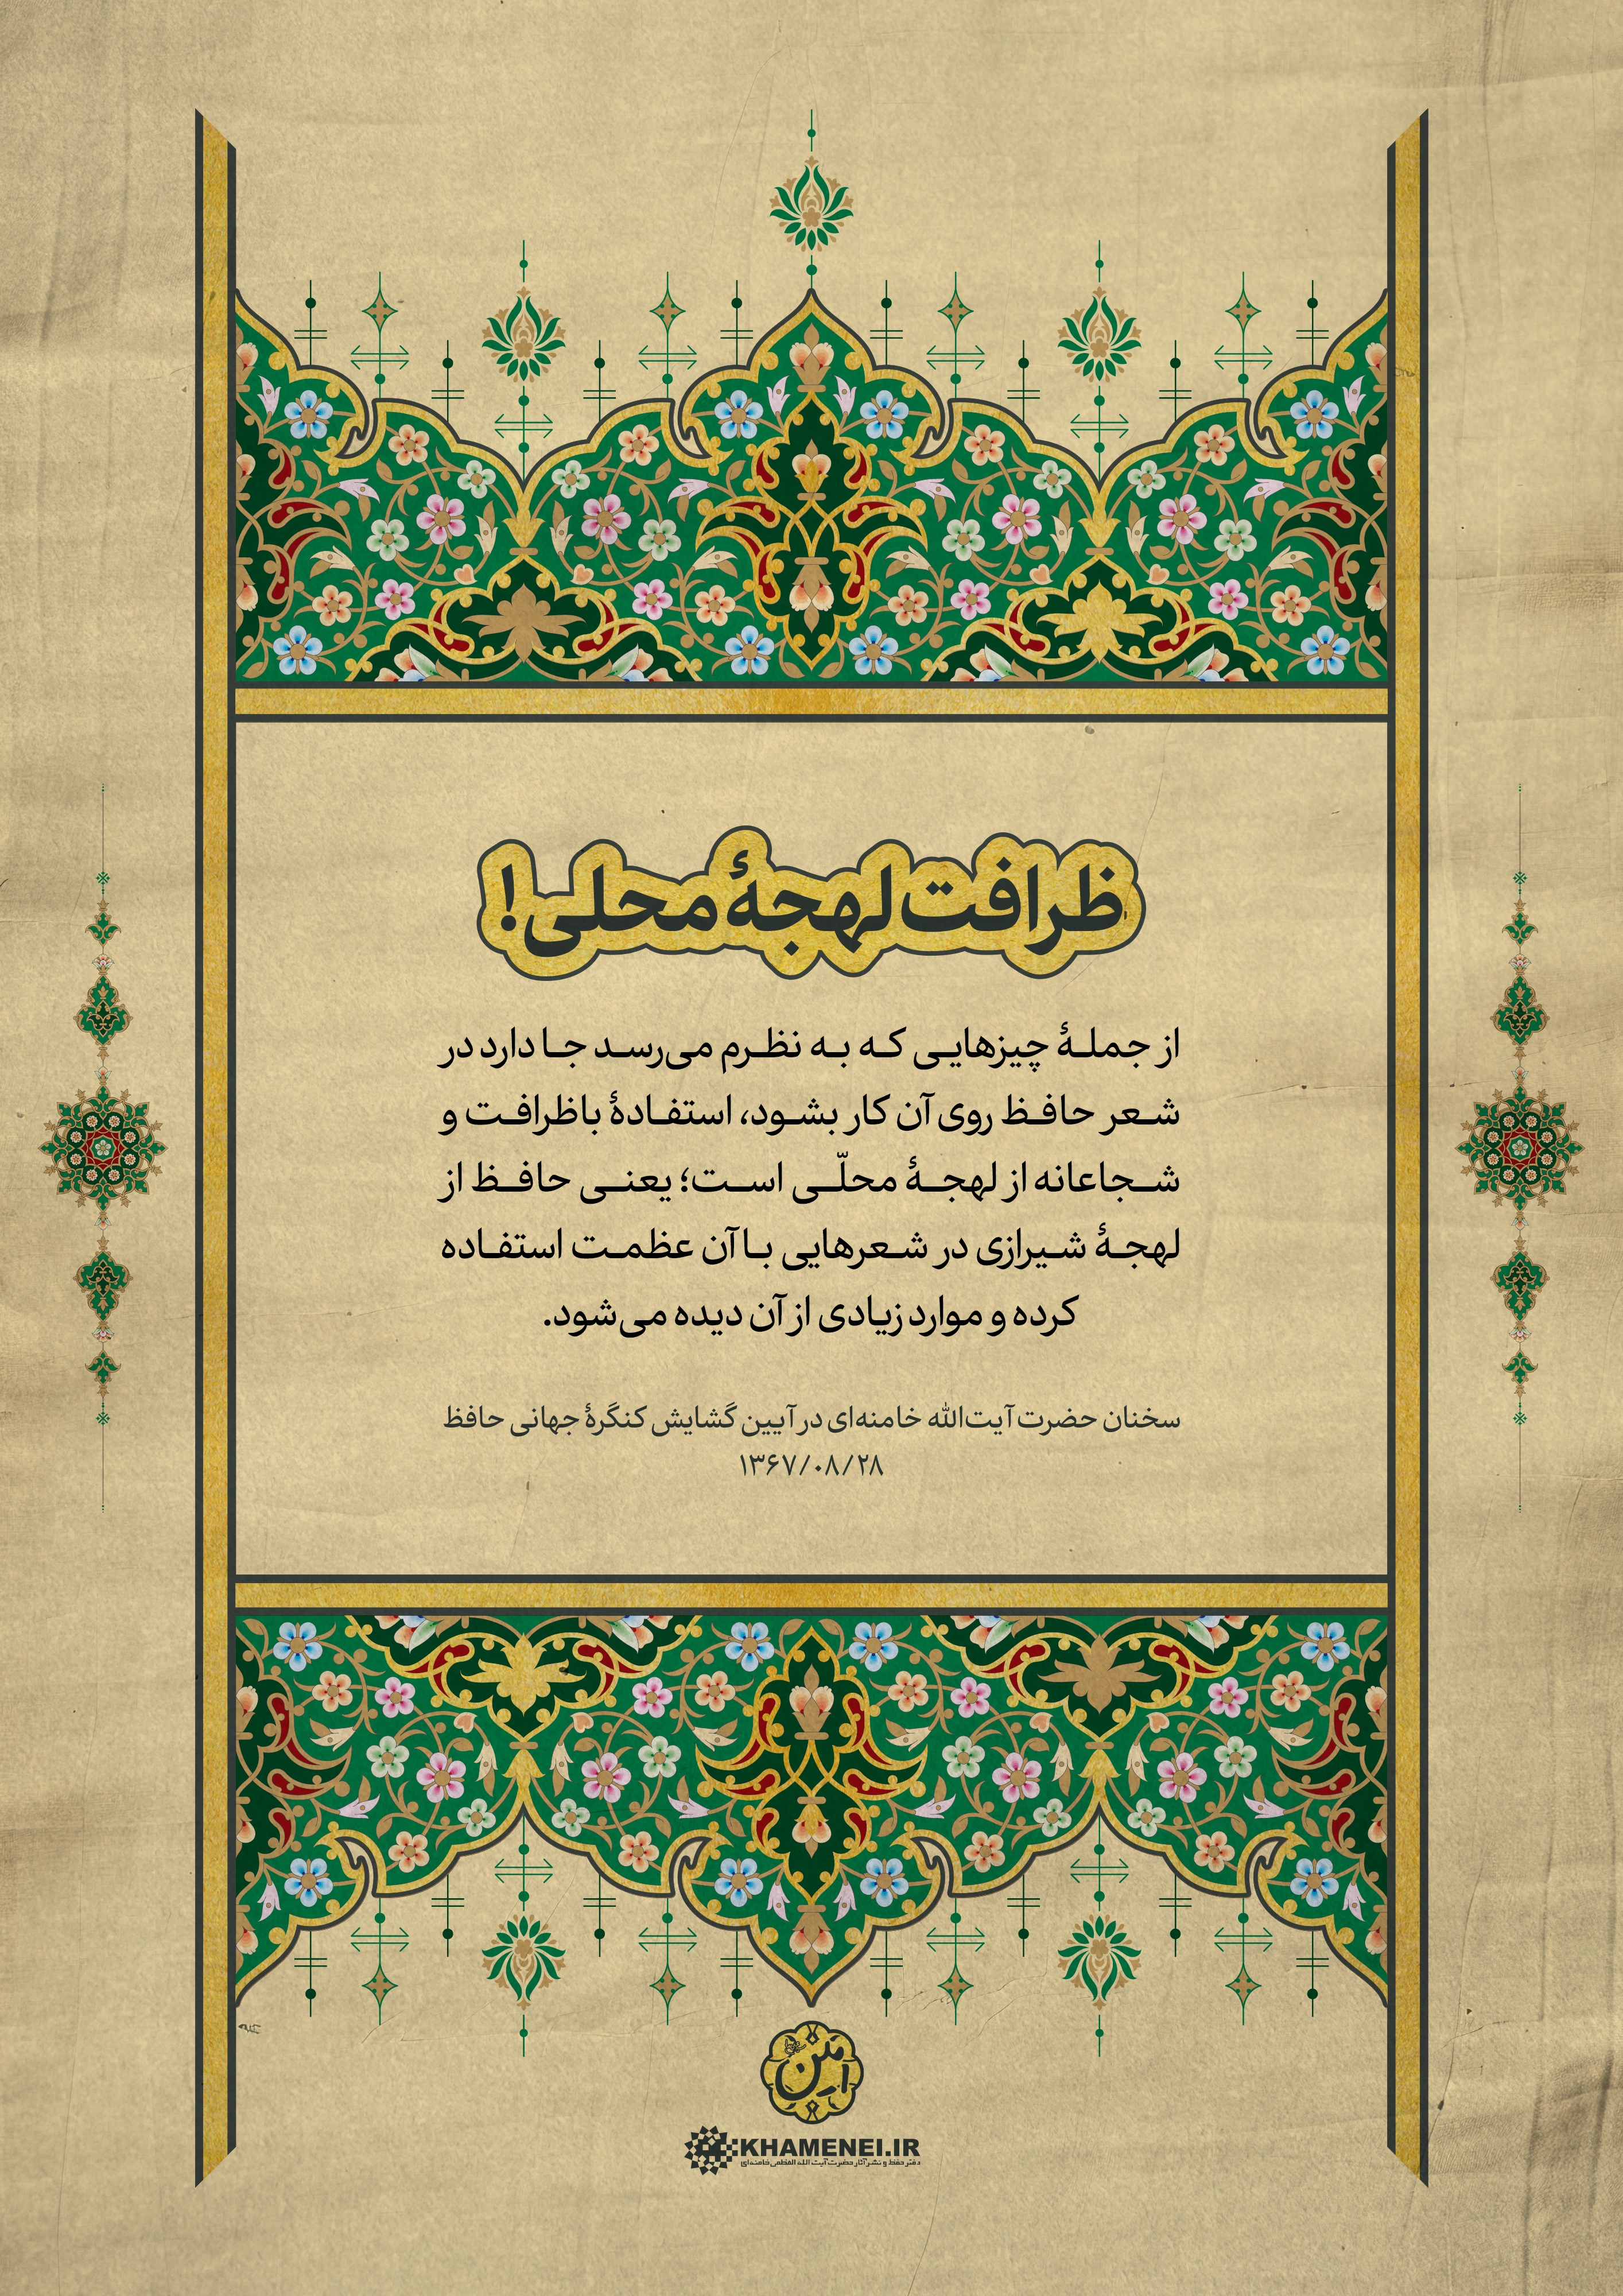 ظرافت لهجهٔ محلی!
از جملهٔ چیزهایی که به نظرم می‌رسد جا دارد در
شعر حافظ روی آن کار بشود، استفادهٔ باظرافت و
شجاعانه از لهجهٔ محلّی است؛ یعنی حافظ از
لهجهٔ شیرازی در شعرهایی با آن عظمت استفاده
کرده و موارد زیادی از آن دیده می‌شود.
سخنان حضرت آیت‌الله خامنه‌ای در آیین گشایش کنگرهٔ جهانی حافظ
۱۳۶۷/۰۸/۲۸
KHAMENEI.IR
دفتر حفظ و نشر آثار حضرت آیت الله العظمی خامنه‌ای